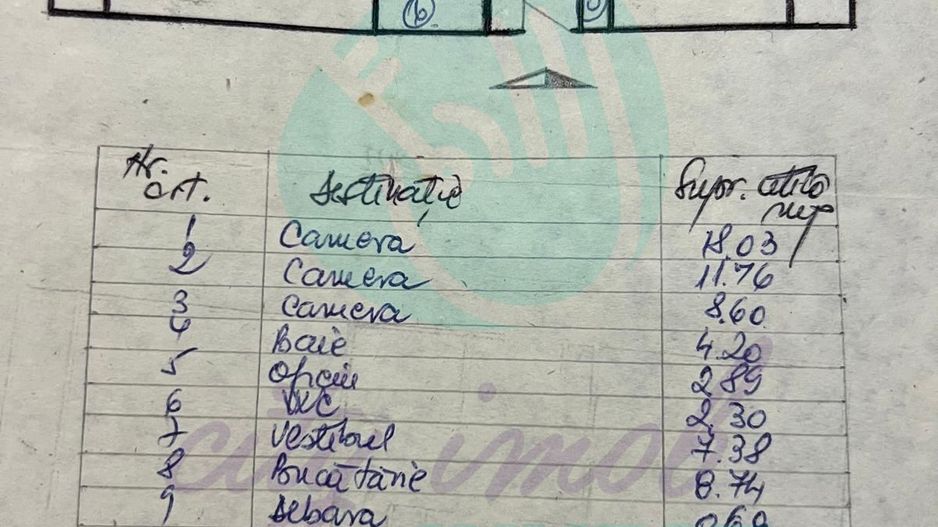 6
Nr. crt. Destinație Supr. utilă mp
1 Camera 18.03
2 Camera 11.76
3 Camera 8.60
4 Baie 4.20
5 Oficiu 2.89
6 WC 2.30
7 Vestibul 7.38
8 Bucătărie 8.74
9 Debara
imob